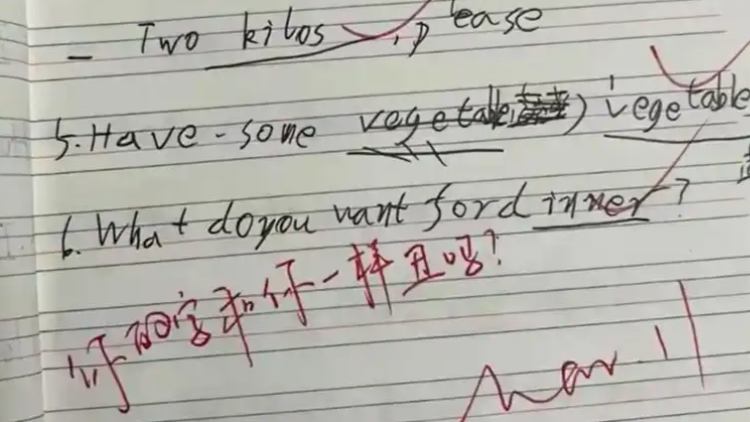 - Two kilos, please
5. Have some vegetable) vegetable
6. What do you want for dinner?
你的字和你一样丑吗?
Mar. 11